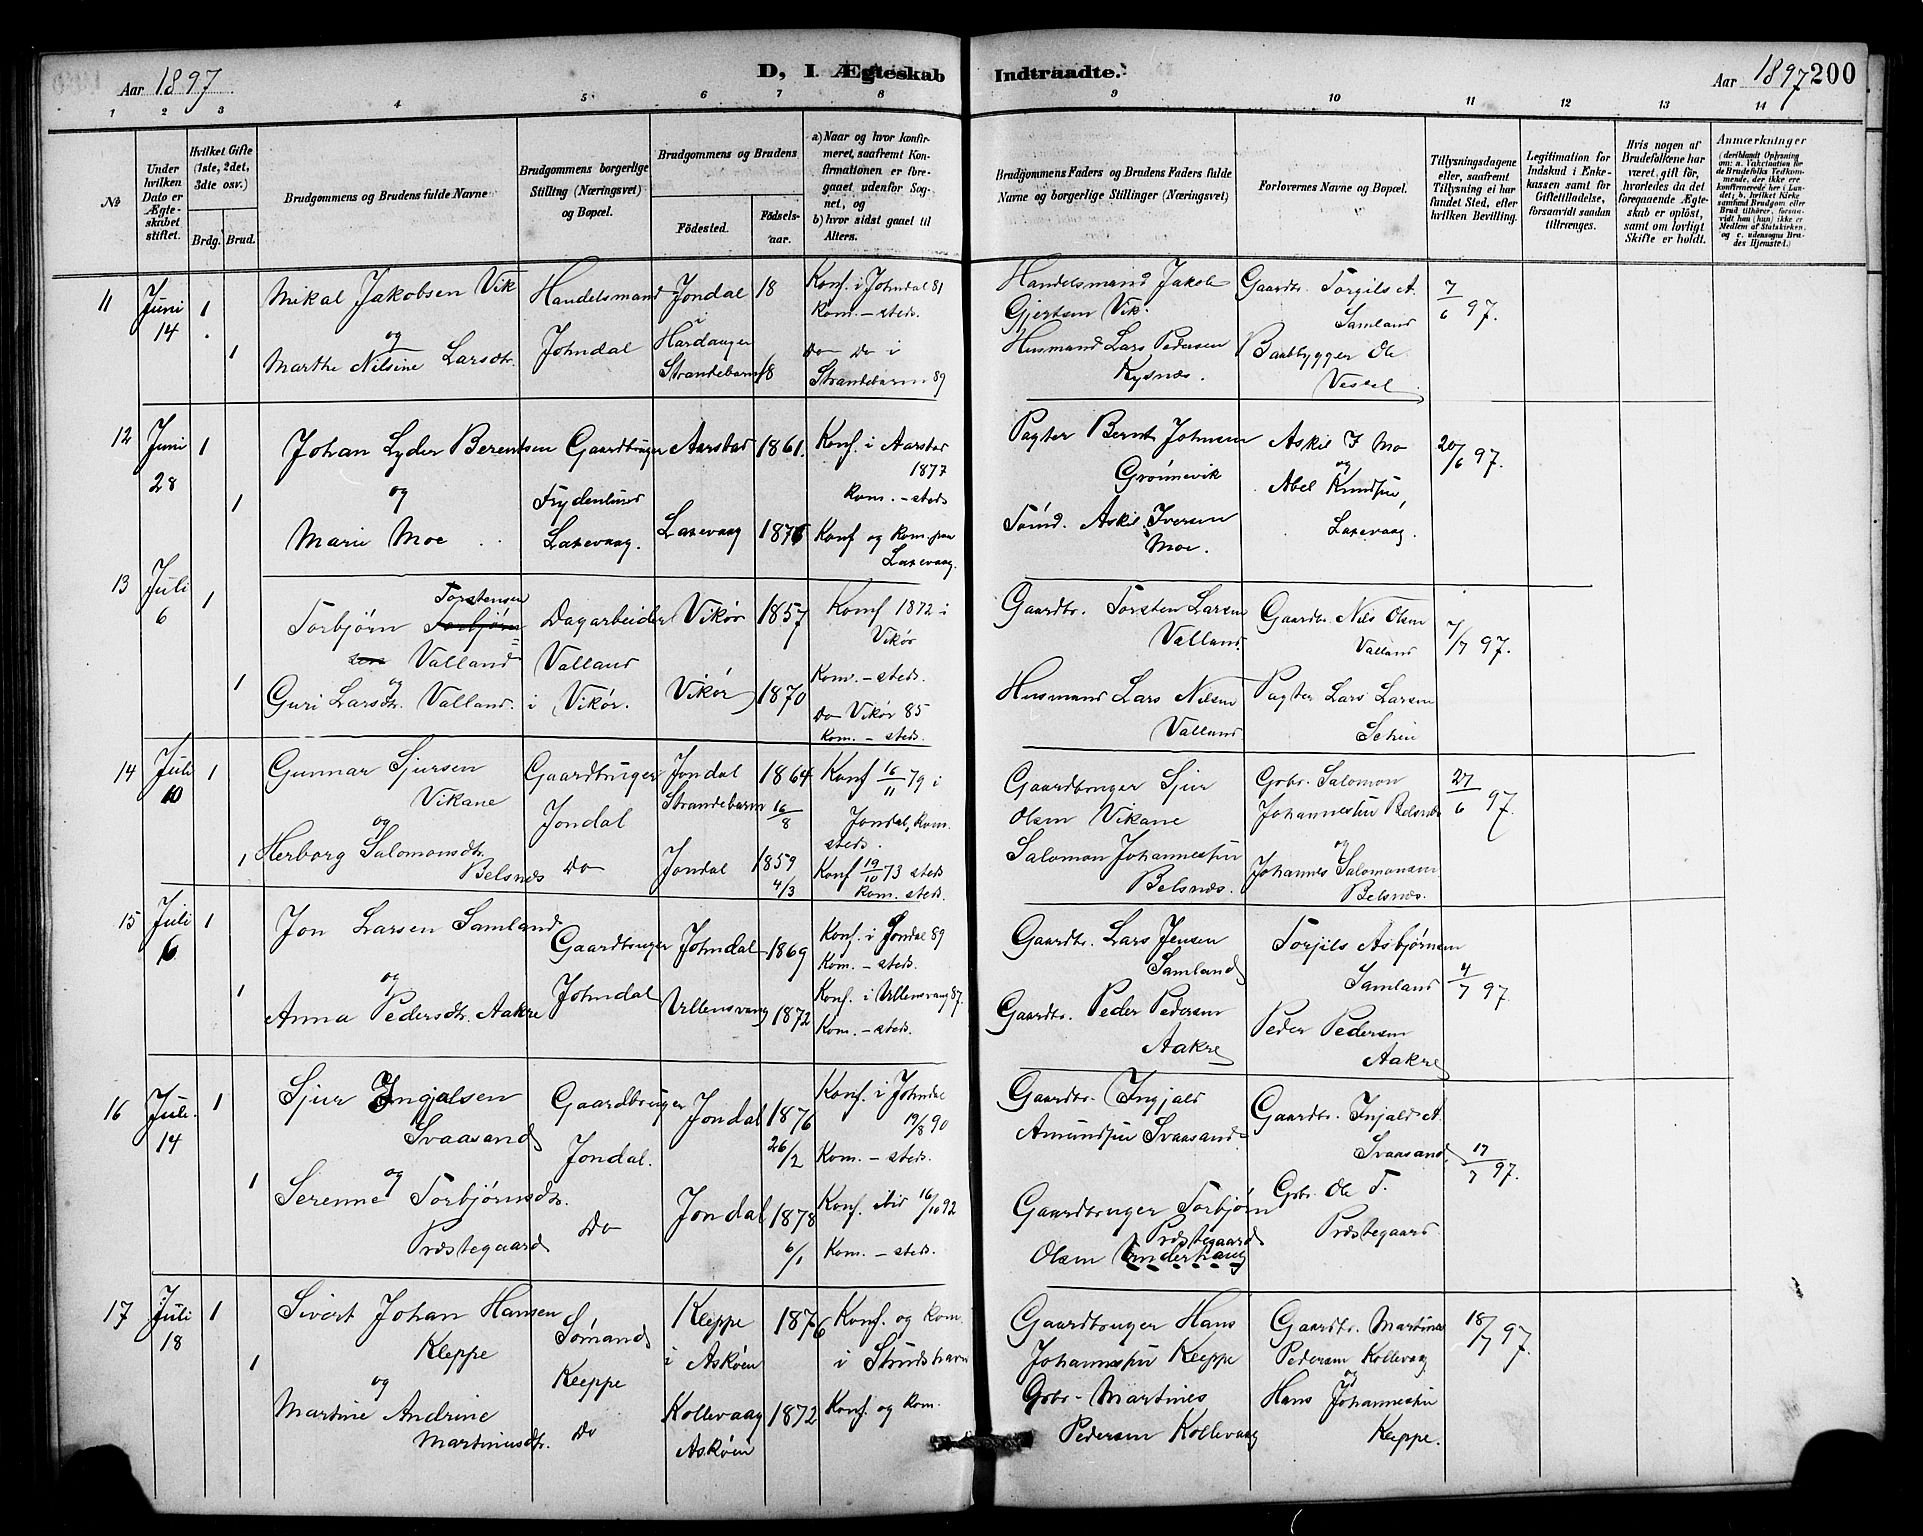 Aar 1897
D, I. Ægteskab Indtraadte.
Aar 1897 200
1 2 3 4 5 6 7 8 9 10 11 12 13 14
No
Under hvilken Dato er Ægteskabet stiftet.
Hvilket Gifte (1ste, 2det, 3die osv.)
Brdg. Brud.
Brudgommens og Brudens fulde Navne
Brudgommens borgerlige Stilling (Næringsvei) og Bopæl.
Brudgommens og Brudens
Fødested. Fødselsaar.
a) Naar og hvor konfirmeret, saafremt Konfirmationen er foregaaet udenfor Sognet, og
b) hvor sidst gaaet til Alters.
Brudgommens Faders og Brudens Faders fulde Navne og borgerlige Stillinger (Næringsvei)
Forlovernes Navne og Bopæl.
Tillysningsdagene eller, saafremt Tillysning ei har fundet Sted, efter hvilken Bevilling.
Legitimation for Indskud i Enkekassen samt for Giftetilladelse, forsaavidt saadan tiltrænges.
Hvis nogen af Brudefolkene har været gift før, hvorledes da det foregaaende Ægteskab er opløst, samt om lovligt Skifte er holdt.
Anmærkninger
(deriblandt Oplysning om: a. Vakcination for de Brudefolks Vedkommende, der ikke ere konfirmerede her i Landet; b. hvilket Kirkesamfund Brudgom eller Brud tilhører, forsaavidt han (hun) ikke er Medlem af Statskirken, og c. udensogns Brudes Hjemsted.)
11 Juni 14 1 1
Mikal Jakobsen Vik
og
Marthe Nilsine Larsdtr.
Handelsmand
Johndal
Jondal 18
i Hardanger
Strandebarm 18
Konf. i Johndal 81
Kom. - steds.
Do Do i
Strandebarm 89
Handelsmand Jakob
Gjertsen Vik.
Husmand Lars Pedersen
Kysnæs.
Gaardbr. Torgils A.
Samland
Baadbygger Ole
7/6 97.
12 Juni 28 1 1
Johan Lyder Berentsen
og
Marie Moe
Gaardbruger
Frydenlund
Laxevaag.
Aarstad 1861.
Laxevaag 1876
Konf. i Aarstad
1877
Kom. - steds
Konf og Kom. fra
Laxevaag.
Pagter Bernt Johnsen
Grønnevik
Tømd. Askil Iversen
Moe.
Askil I Mo
og
Abel Knudsen,
Laxevaag.
20/6 97.
13 Juli 6 1 1
Torstensen
Torbjørn Torbjørn
sen Valland
og
Guri Larsdtr. Valland.
Dagarbeider
Valland
i Vikør.
Vikør 1857
Vikør 1870
Konf 1872 i
Vikør
Kom. - steds.
Do Vikør 85
Kom. - steds.
Gaardbr. Torsten Larsen
Valland.
Husmand Lars Nilsen
Valland
Gaardbr. Nils Olsen
Valland
Pagter Lars Larsen
7/7 97.
14 Juli 10 1 1
Gunnar Sjursen
Vikane
og
Herborg Salomonsdtr.
Belsnæs
Gaardbruger
Jondal
Do
Jondal 1864
Strandebarm 16/8
Jondal 1859
4/3
Konf 16/11 79 i
Jondal, Kom.
steds.
Konf 19/10 73 steds
Kom. steds.
Gaardbruger Sjur
Olsen Vikane
Salomon Johannessen
Belsnæs.
Grbr. Salomon
Johannessen Belsnæs
og
Johannes Salomonsen
Belsnæs.
27/6 97.
15 Juli 6 1 1
Jon Larsen Samland
og
Anna Pedersdtr. Aakre
Gaardbruger
Johndal
Johndal 1869
Ullensvang 1872
Konf. i Jondal 89
Kom. - steds
Konf. i Ullensvang 87.
Kom. - steds.
Gaardbr. Lars Jensen
Samland
Gaardbr. Peder Pedersen
Aakre
Torjils Asbjørnsen
Samland
Peder Pedersen
Aakre
4/7 97.
16 Juli. 14 1 1
Sjur Ingjalsen
Svaasand
og
Serenne Torbjørnsdtr.
Præstegaard
Gaardbruger
Jondal.
Do
Jondal 1876
26/2
Jondal 1878
6/1
Konf. i Johndal
19/8 90
Kom. - steds.
Konf. ibid 16/10 92
Kom. - steds.
Gaardbr. Ingjald
Amundsen Svaasand
Gaardbruger Torbjørn
Præstegaard
Olsen Underhaug
Gaardbr. Injald A.
Svaasand.
Grbr. Ole T.
Præstegaard
17/7 97.
17 Juli 18 1 1
Sivert Johan Hansen
Kleppe
og
Martine Andrine
Martinusdtr.
Sømand
Kleppe
Do
Kleppe 1876
i Askøen
Kollevaag 1872
Askøen
Konf. og Kom.
i Strudshavn
Konf. og Kom.
Gaardbruger Hans
Johannessen Kleppe
Grbr. Martines
Pedersen Kollevaag
Gaardbr. Martines
Pedersen Kollevaag
og
Hans Johannessen
Kleppe.
18/7 97.